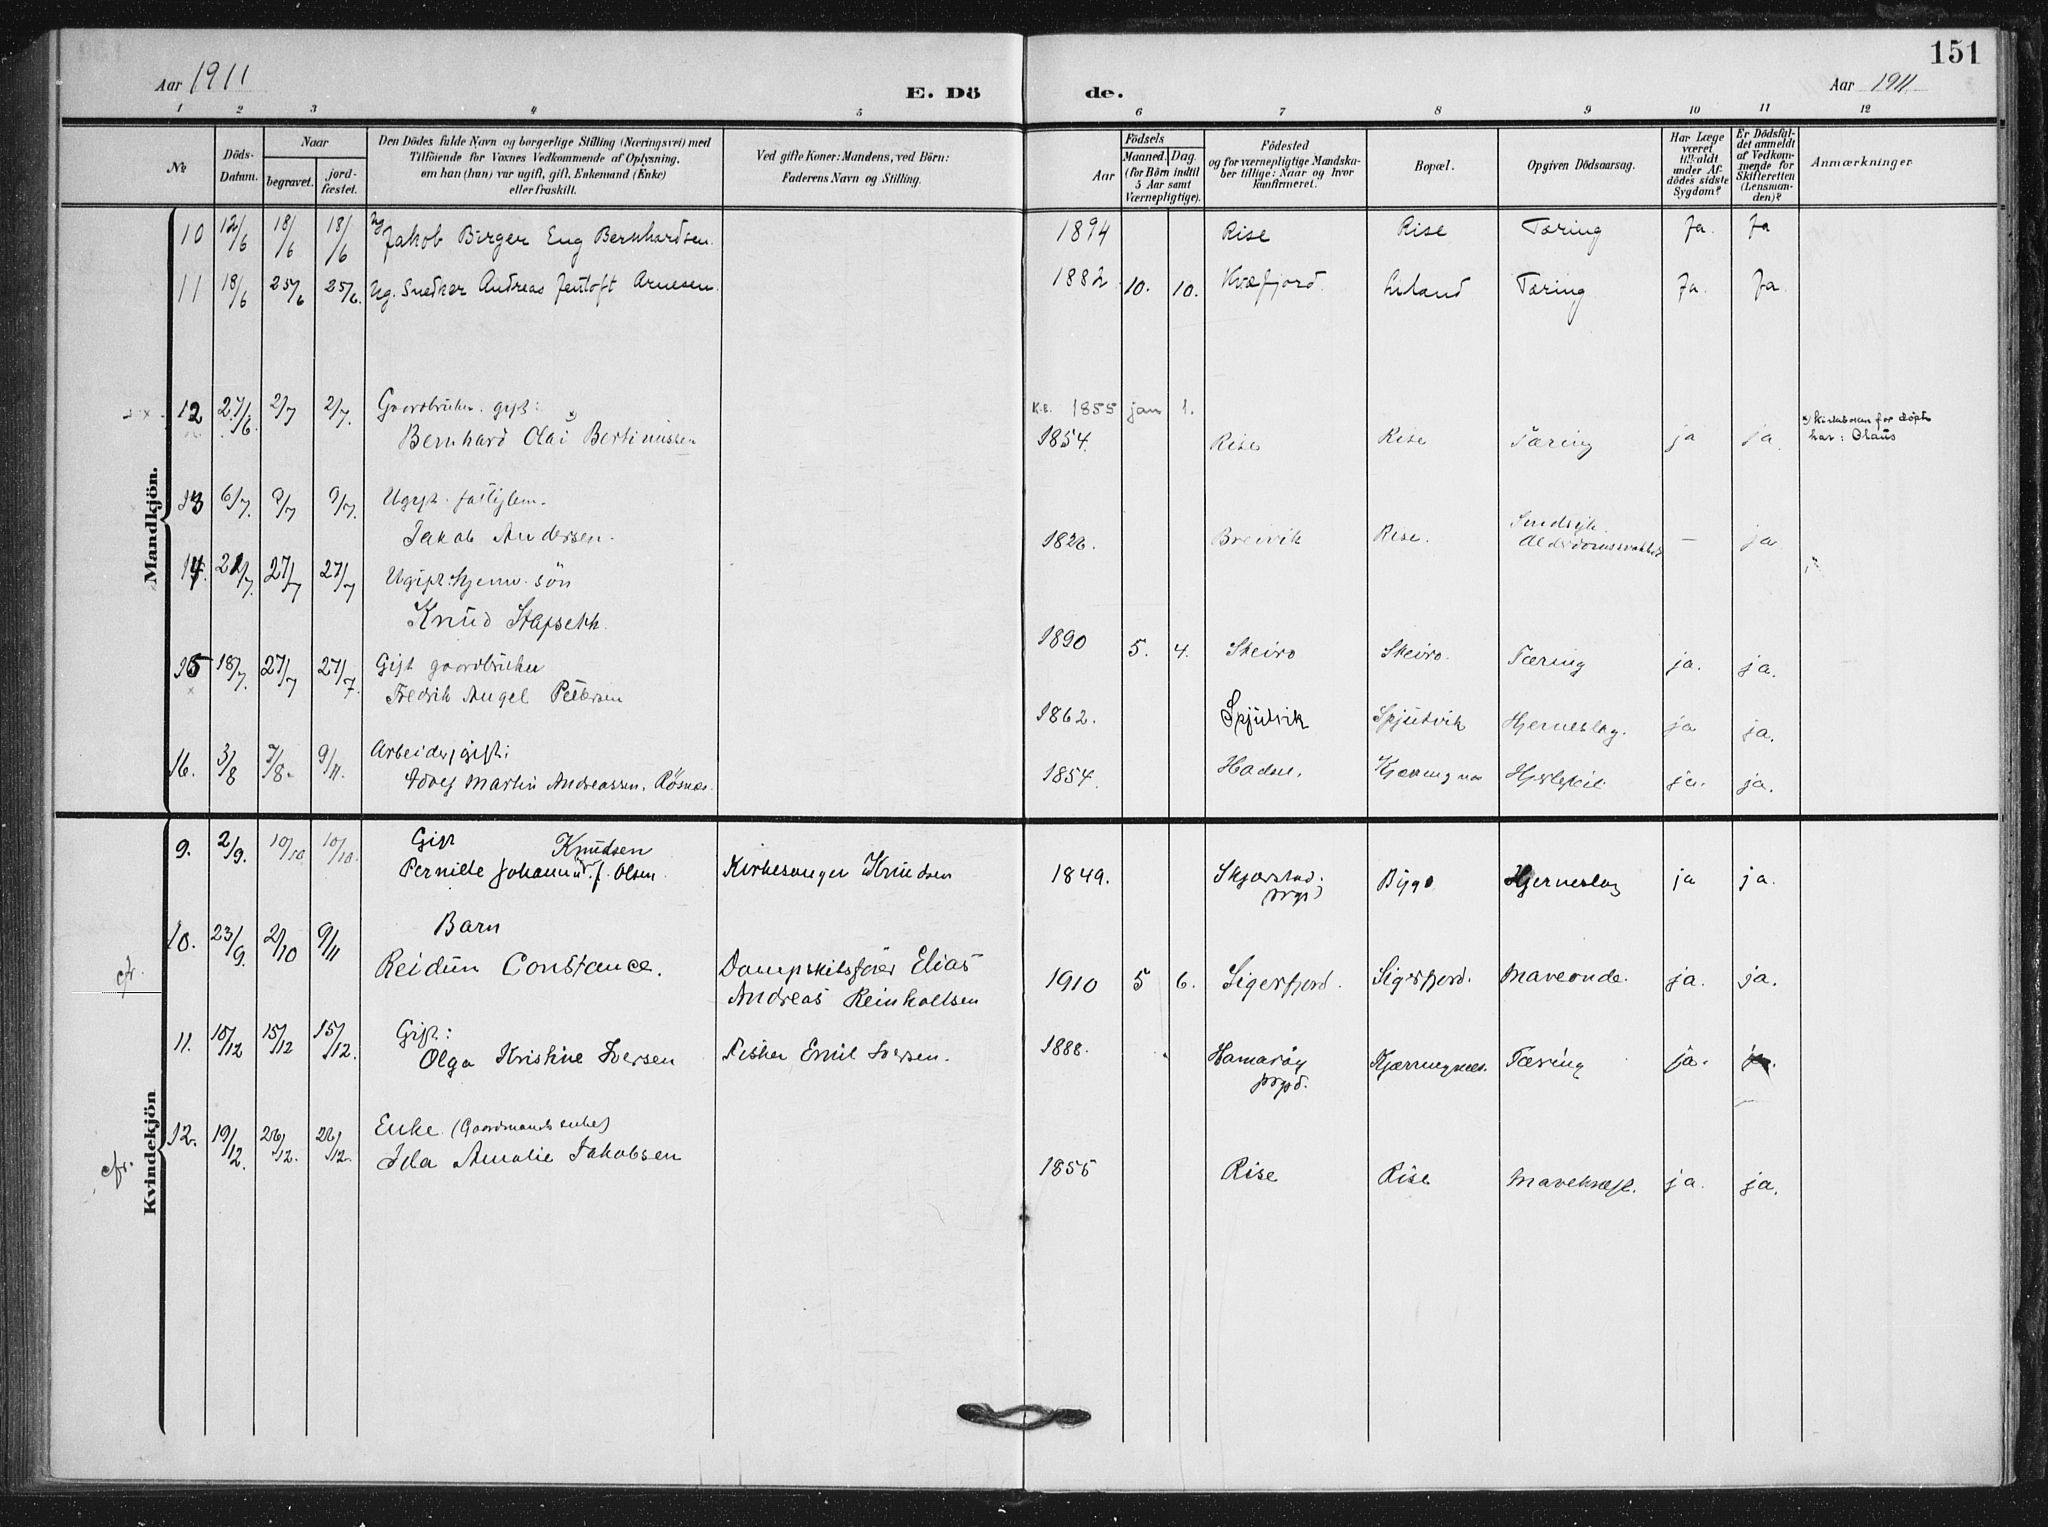 151
Aar 1911
E. Dö de.
Aar 1911
1 2 3 4 5 6 7 8 9 10 11 12
No
Döds-Datum.
Naar
begravet.
jord-fæstet.
Den Dödes fulde Navn og borgerlige Stilling (Næringsvei) med
Tilföiende for Voxnes Vedkommende af Oplysning,
om han (hun) var ugift, gift, Enkemand (Enke)
eller fraskilt.
Ved gifte Koner: Mandens, ved Börn:
Faderens Navn og Stilling.
Födsels
Aar
Maaned. Dag
(for Börn indtil
5 Aar samt
Værnepligtige).
Födested
og for værnepligtige Mandska-
ber tillige: Naar og hvor
konfirmeret.
Bopæl.
Opgiven Dödsaarsag.
Har Læge
været
tilkaldt
under Af-
dödes sidste
Sygdom?
Er Dödsfal-
det anmeldt
af Vedkom-
mende for
Skifteretten
(Lensman-
den)?
Anmærkninger
Mandkjön.
10 12/6 18/6 18/6 Ug Jakob Birger Eng Bernhardsen. 1894 Rise Rise Tæring Ja. Ja
11 18/6 25/6 25/6. Ug. Snedker Andreas Jentoft Arnesen. 1882 10. 10. Kvæfjord. Tæring Ja. Ja.
12 27/6. 2/7 2/7. Gaardbruker. gift:
K.B. 1855 jan 1.
x) Kirkeboken for døpte
Bernhard Olai x) Bertinussen 1854. Rise Rise Tæring ja ja. har: Olaus
13 6/7. 9/7 9/7. Ugift.
Jakob Andersen. 1826. Breivik Rise. Alderdomssvakhet – ja
14. 21/7. 27/7 27/7 Ugift. hjemv. søn
Knud Stapsekk. 1890 5. 4. Skeiro Skeiro. Tæring ja. ja.
15 18/7. 27/7 27/7. Gift gaardbruker
Fredrik Angel Petersen 1862. Spjutvik Spjutvik Hjerneslag. ja ja.
16. 3/8 7/8. 9/11. Arbeider, gift:
Martin Andreassen, Røsnes. 1854. Hadsel. Kjerringnes Hjertefeil ja. ja.
Kvindekjön
9. 2/9. 10/10 10/10. Gift Knudsen
Pernille Johanna f. Olsen Kirkesanger Knudsen 1849. Skjerstad prgd Bygd Hjerneslag ja ja.
10. 23/9. 2/10 9/11 Barn
cfr. Reidun Constance. Dampskibsfører Elias
Andreas Reinholtsen 1910 5 6. Sigerfjord. Sigerfjord. Maveonde. ja. ja.
11. 10/12 15/12 15/12. Gift:
Olga Kristine Iversen Fisker Emil Iversen. 1888. Hamarøy prgd. Kjærringnes. Tæring ja. ja.
12. 19/12. 26/12. 26/12. Enke (Gaardmandsenke)
cfr. Ida Amalie Jakobsen 1855 Rise Rise Mavekræft. ja. ja.